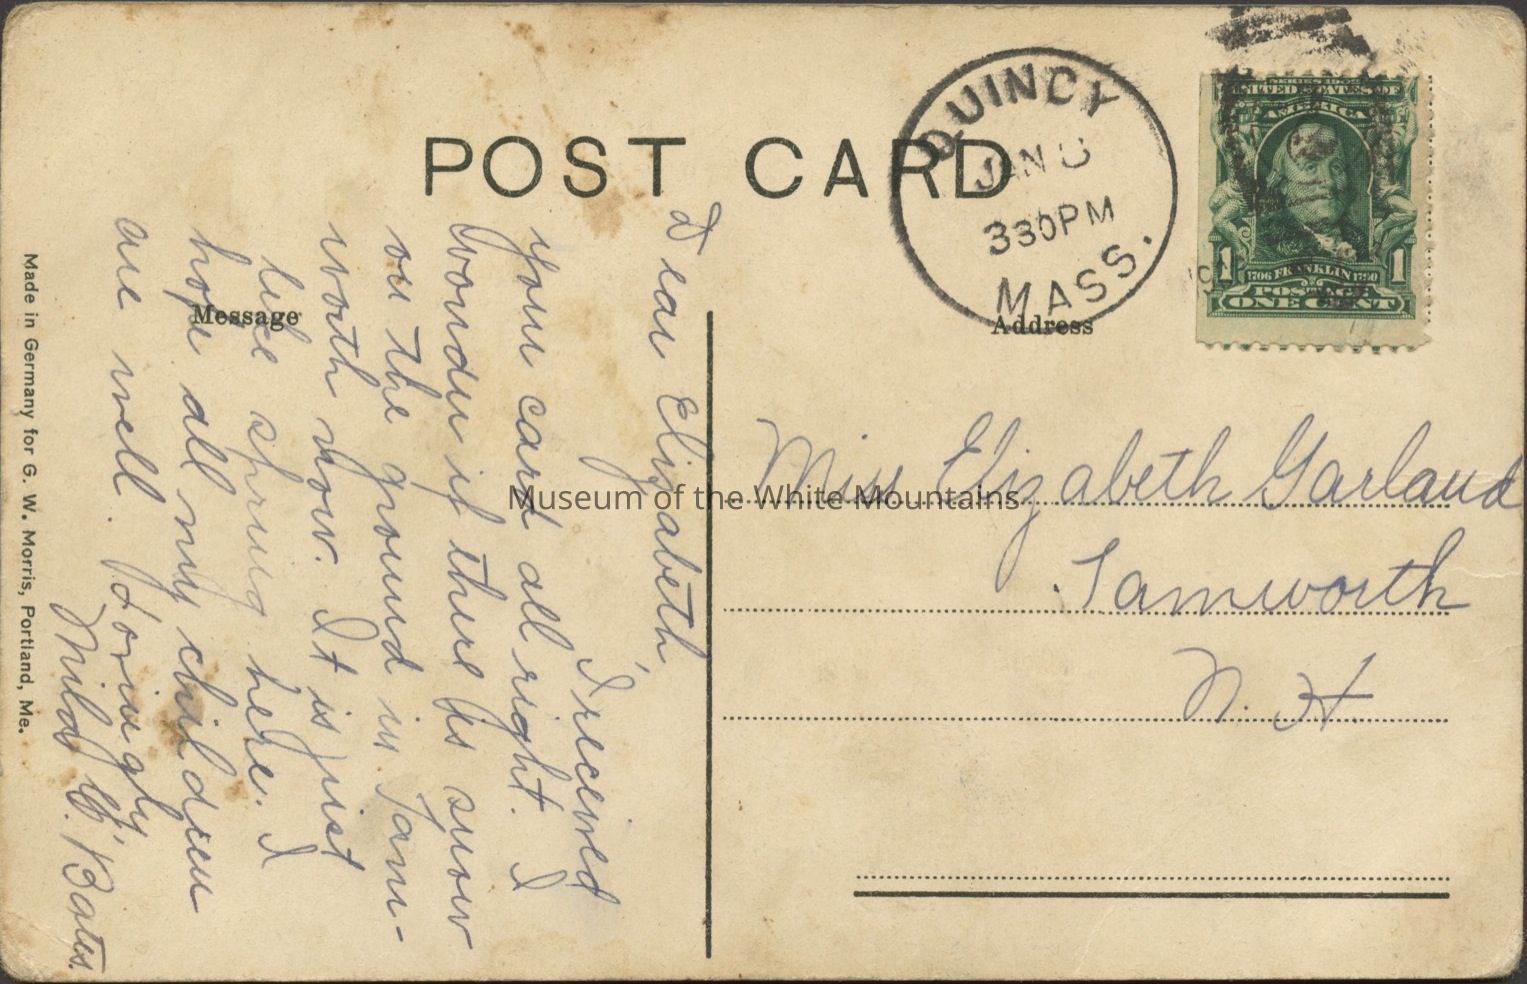 POST CARD
QUINCY
JAN
330PM
MASS.
SERIES 1902
UNITED STATES OF
AMERICA
1 1706 FRANKLIN 1790 1
POSTAGE
ONE CENT
Message
Address
Dear Elizabeth,
I received
your card all right. I
wonder if there is snow
on the ground in Tam-
worth now. It is just
like spring here. I
hope all my children
are well. Lovingly,
Mild W. Bates.
Miss Elizabeth Garland
Tamworth
N. H.
Made in Germany for G. W. Morris, Portland, Me.
Museum of the White Mountains